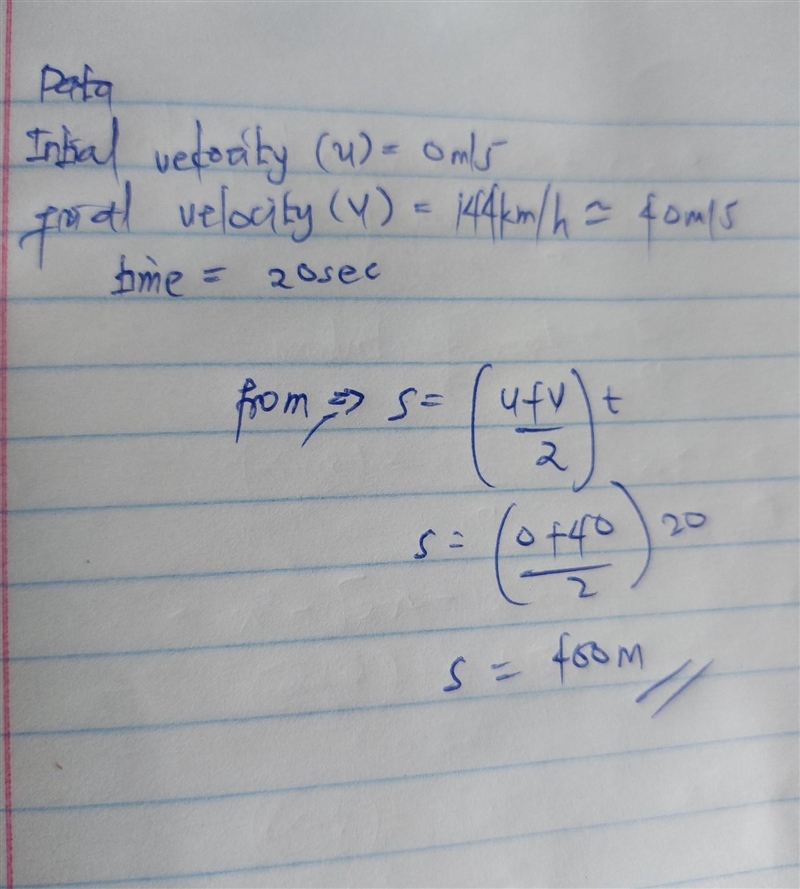 Data
Initial velocity (u) = 0m/s
final velocity (v) = 144km/h ≃ 40m/s
time = 20sec
from ⇒ s = (u+v/2) t
s = (0+40/2) 20
s = 400m //